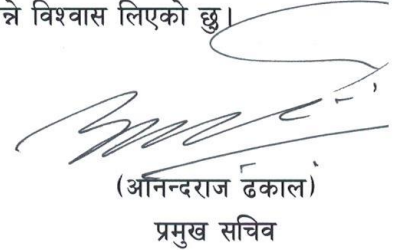 न्ने विश्वास लिएको छु।
(आनन्दराज ढकाल)
प्रमुख सचिव